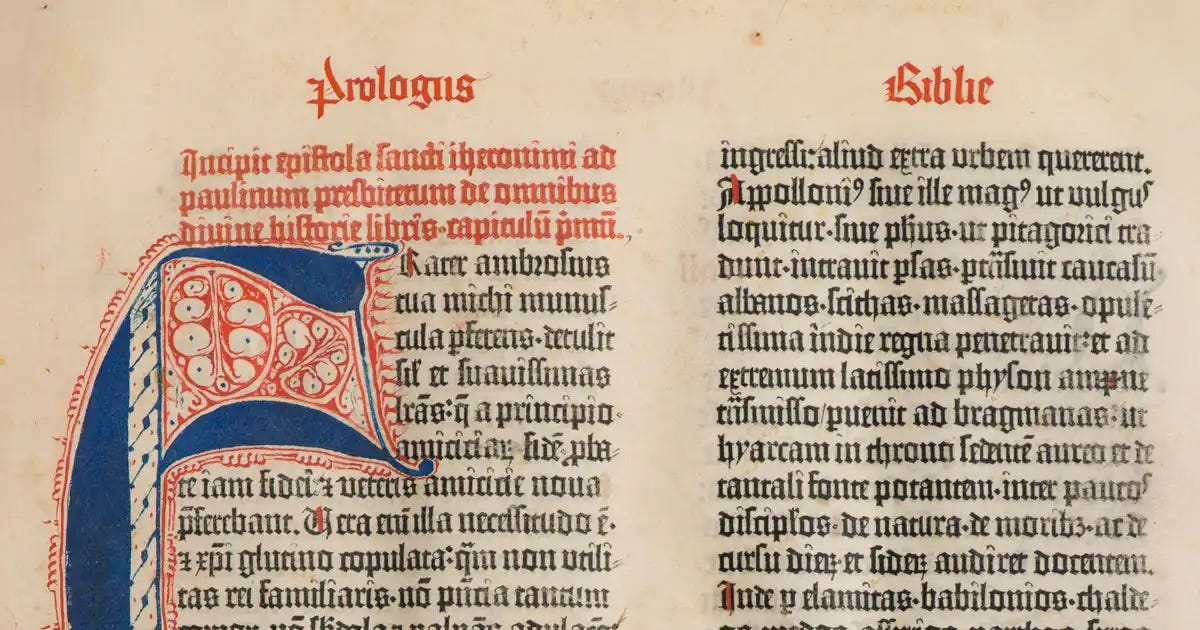 Prologus
Incipit epistola sancti iheronimi ad
paulinum presbiterum de omnibus
divine historie libris·capitulū p̄mū.
Frater ambrosius
tua michi munus⸗
cula ꝑferens·detulit
sił et suavissimas
lrās: q̄ a principio
amiciciaꝝ fidē ꝓba⸗
te iam fidei ⁊ veteris amicicie nova
p̄ferebant. Vera em̄ illa necessitudo ē·
⁊ xp̄i glutino copulata: q̄m non utili⸗
tas rei familiaris·nō pn̄cia tantum
Biblie
ingressi: aliud extra urbem quererent.
Appolloniꝰ sive ille magꝰ ut vulgꝰ
loquitur·sive ph̄us·ut pitagorici tra⸗
dunt·intravit ꝑsas·ꝑtrāsivit caucasū
albanos·scithas·massagetas·opulē⸗
tissima indie regna penetravit: et ad
extremum latissimo physon amne
trāsmisso/ꝑvenit ad bragmanas: ut
hyarcam in throno sedentē aureo et de
tantali fonte potantem·inter paucos
discipłos·de natura·de moribꝫ·ac de
cursu dieꝝ et sideꝝ audiret docentem.
Inde ꝑ elamitas·babilonios·chalde⸗